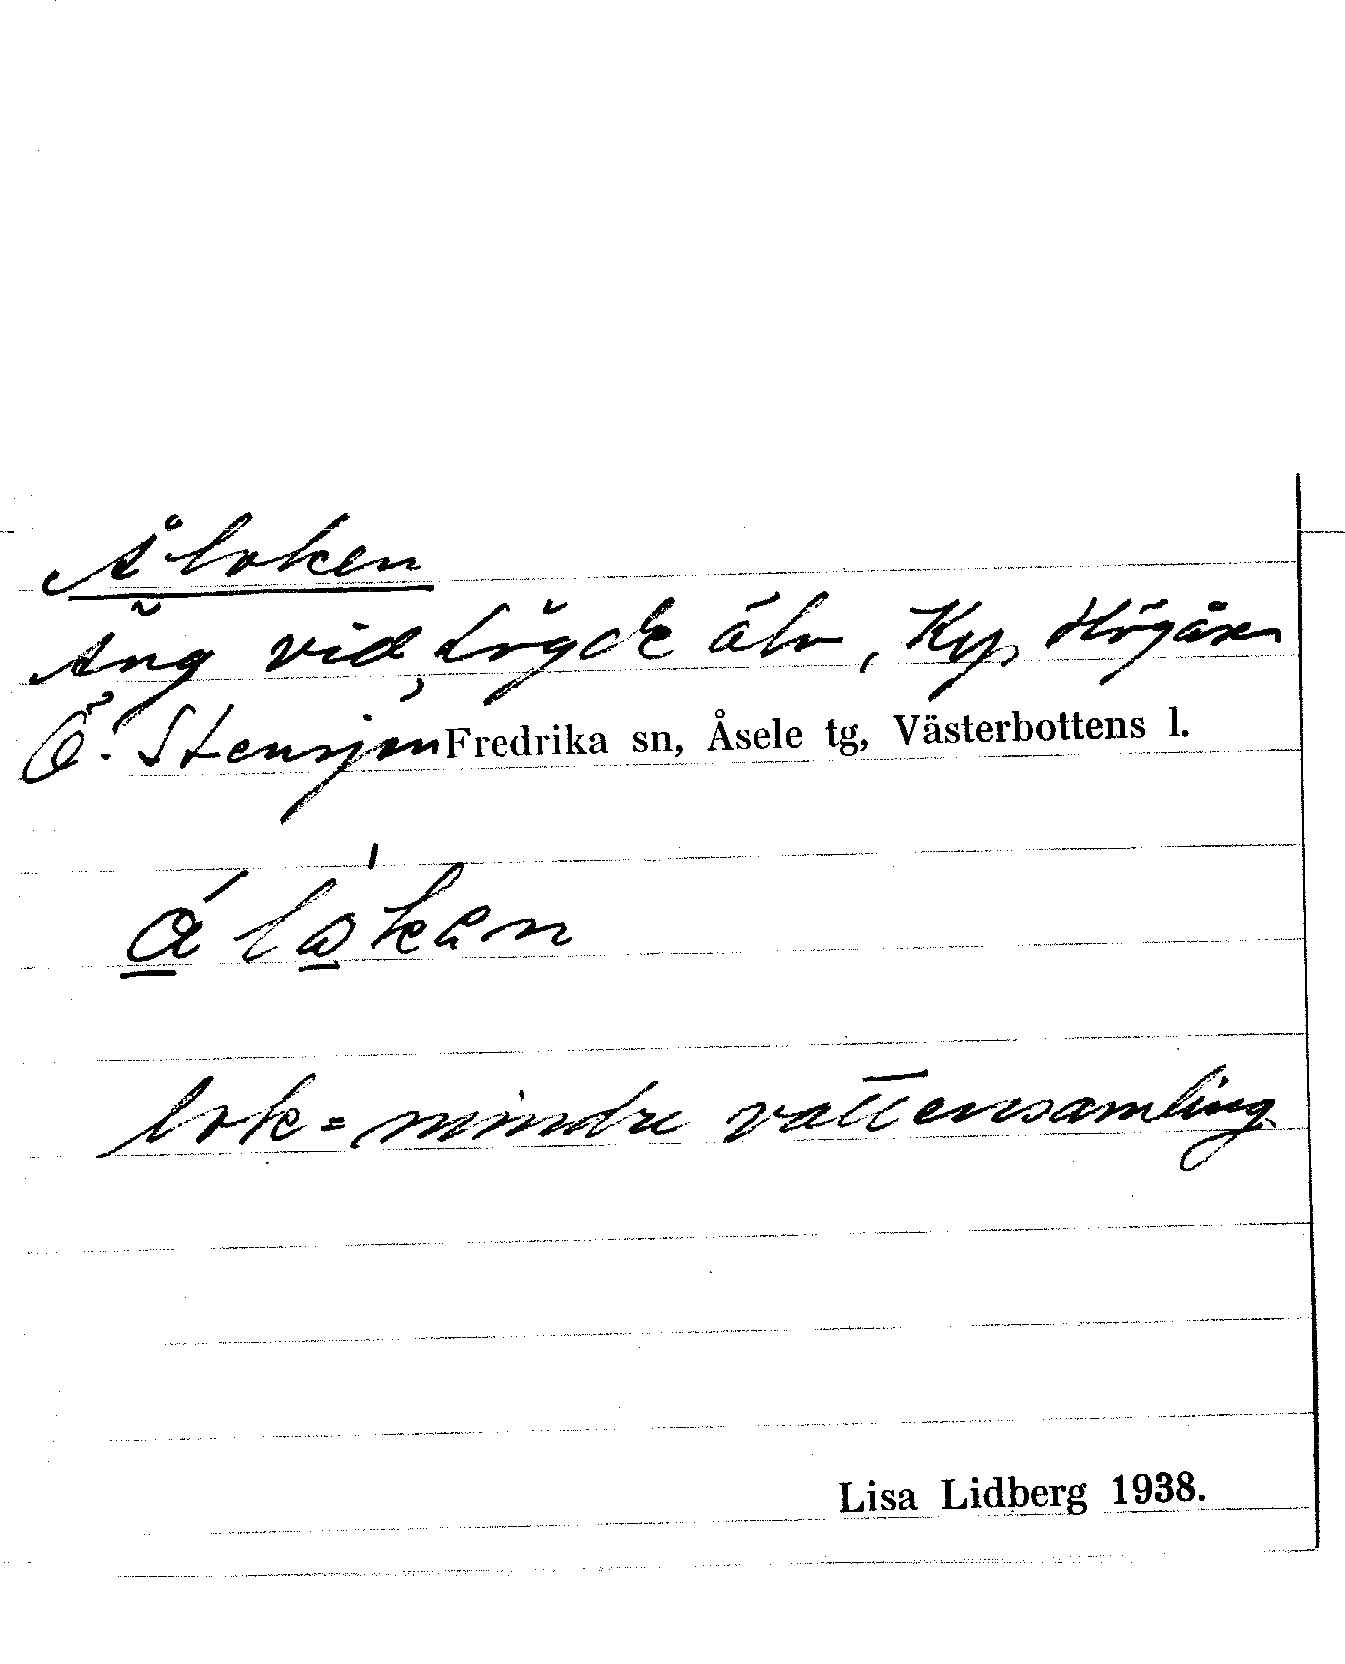 Åloken
Äng vid Lögde älv, Kp, Högåsen
Ö. Stensjön Fredrika sn, Åsele tg, Västerbottens l.
lok = mindre vattensamling
Lisa Lidberg 1938.